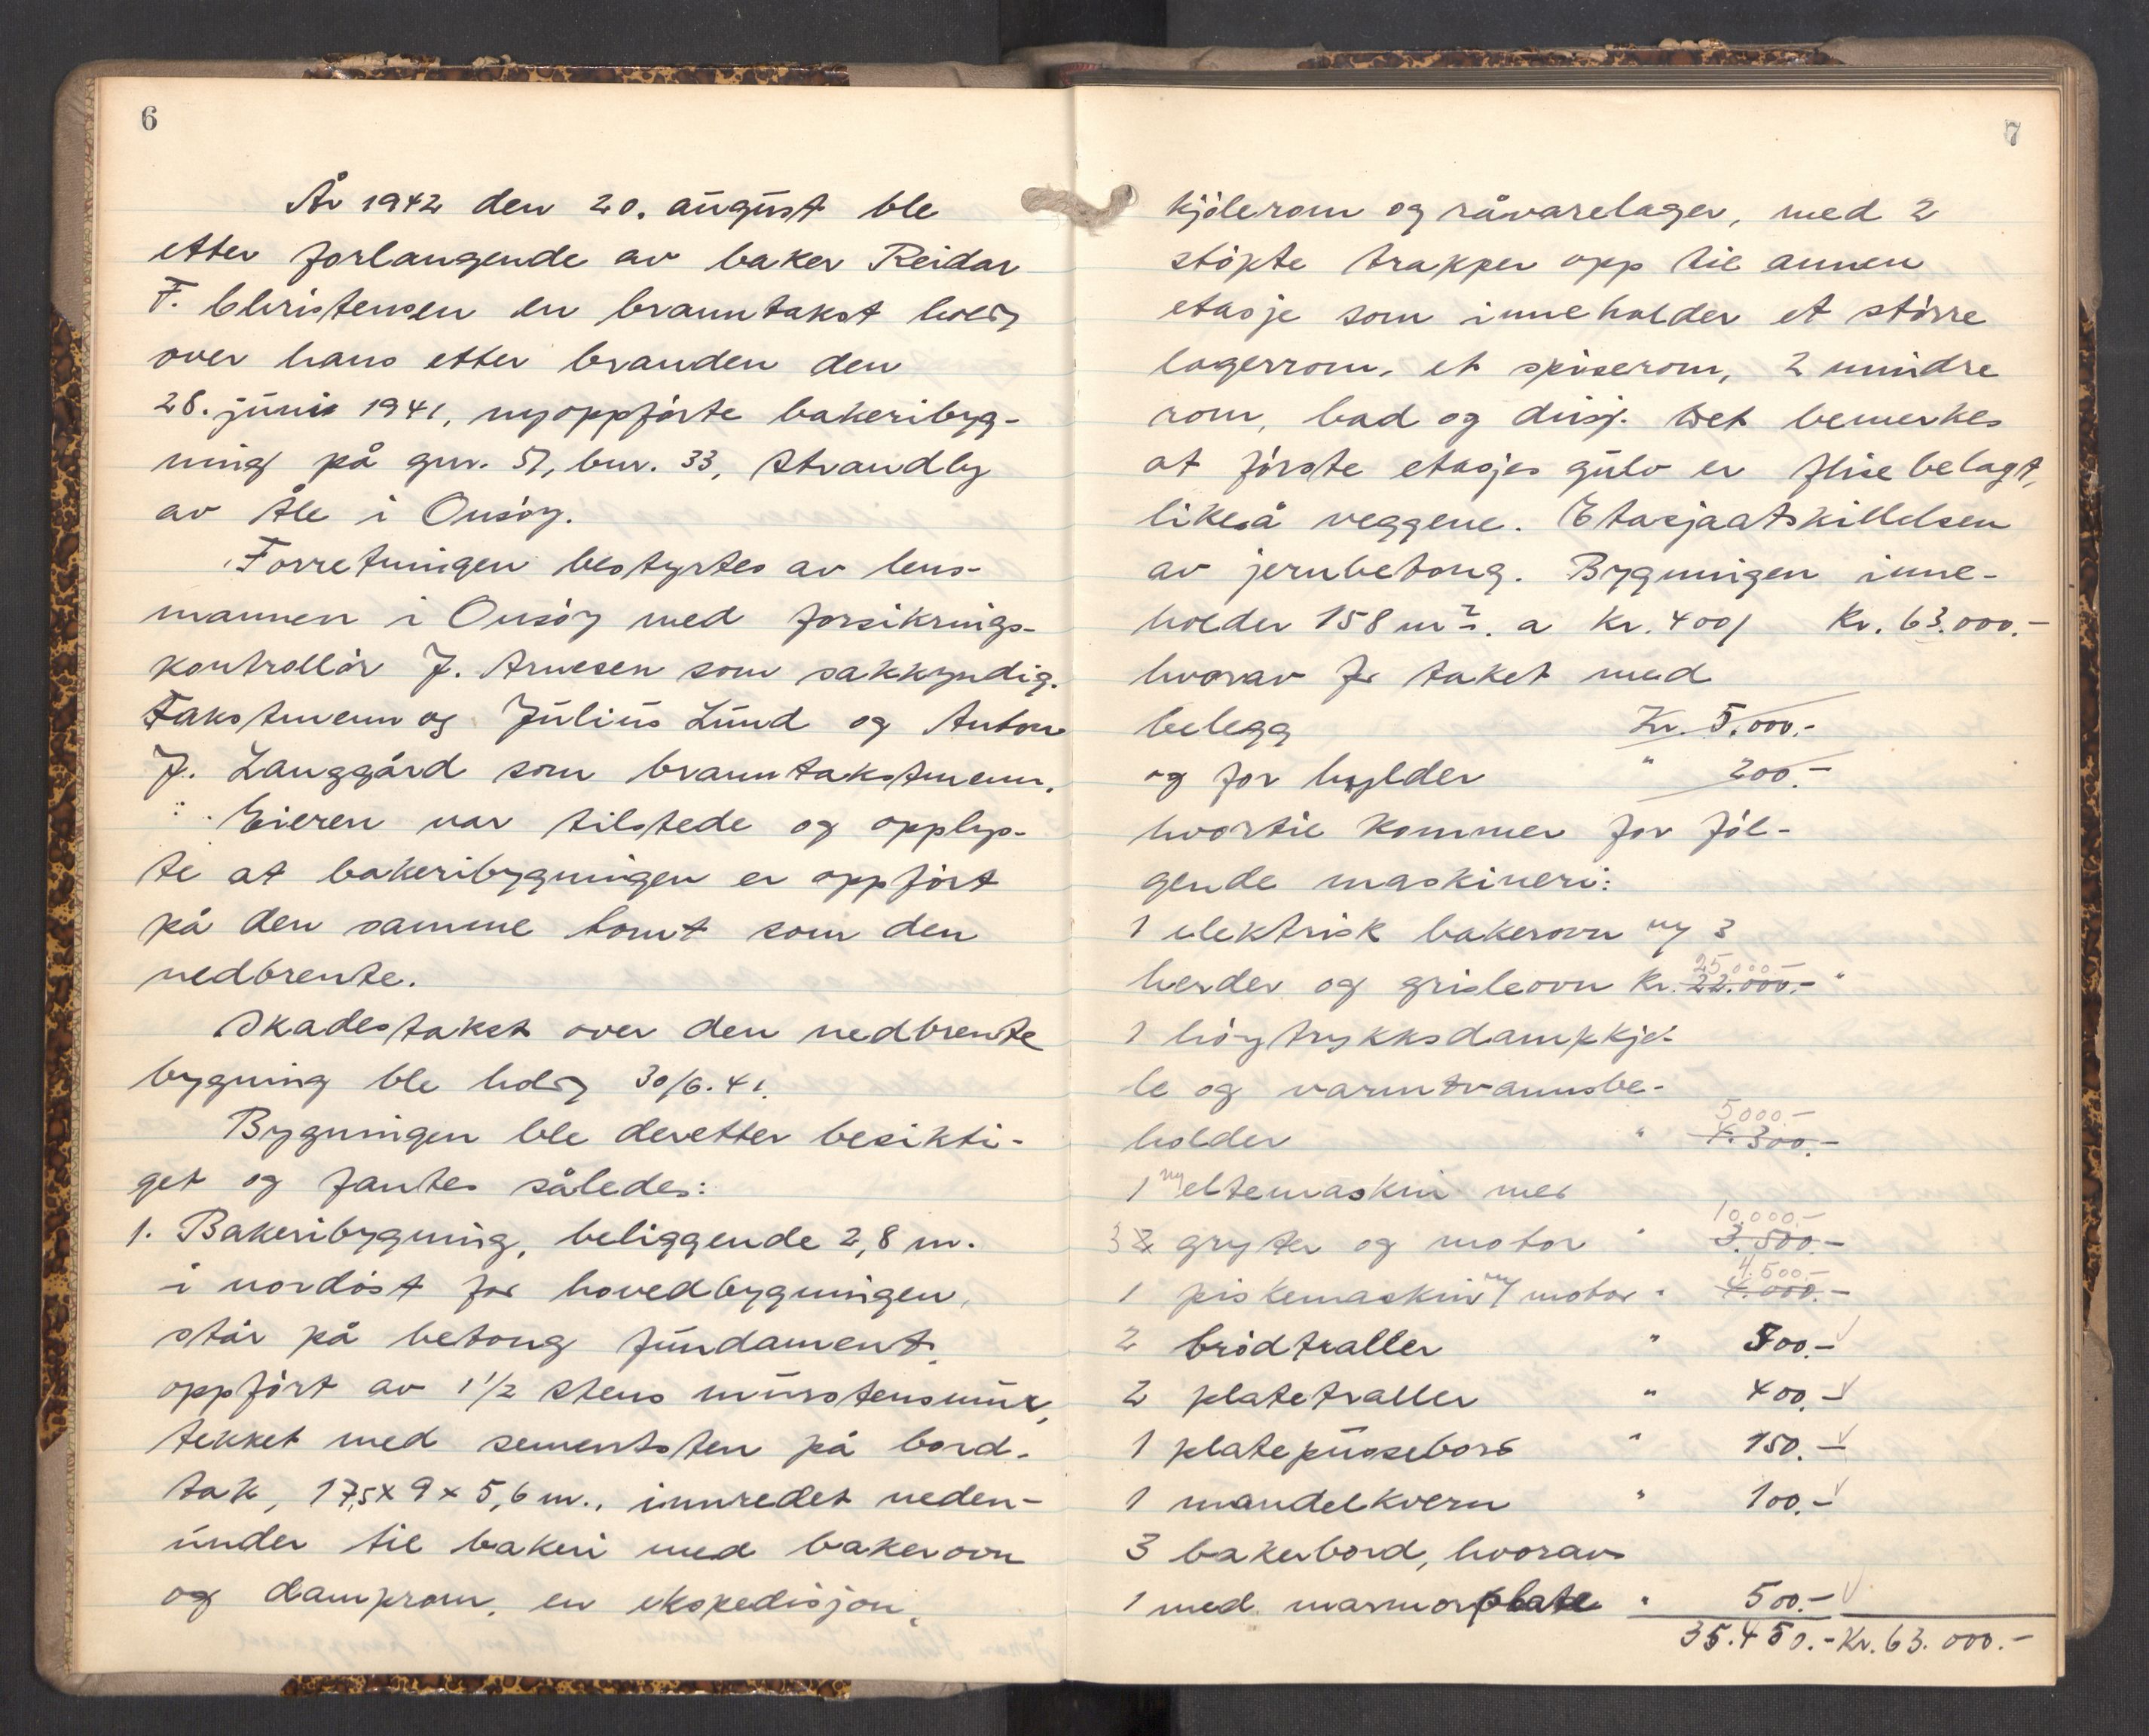 6
År 1942 den 20. august ble
etter forlangende av baker Reidar
F. Christensen en branntakst holdt
over hans etter branden den
28. juni 1941, nyoppførte bakeribyg-
ning på gnr. 57, bnr. 33, Strandby
av Åle i Onsøy.
Forretningen bestyrtes av lens-
mannen i Onsøy med forsikrings-
kontrollør J. Arnesen som sakkyndig.
Takstmenn og Julius Lund og Anton
J. Langgård som branntakstmenn.
Eieren var tilstede og opplys-
te at bakeribygningen er oppført
på den samme tomt som den
nedbrente.
Skadestakst over den nedbrente
bygning ble holdt 30/6.41.
Bygningen ble deretter besikti-
get og fantes således:
1. Bakeribygning, beliggende 2,8 m.
i nordøst for hovedbygningen,
står på betong fundament,
oppført av 1 1/2 stens murstensmur,
tekket med sementsten på bord-
tak, 17,5 x 9 x 5,6 m., innredet neden-
under til bakeri med bakerovn
og damprom, en ekspedisjon,
7
kjølerom og råvarelager, med 2
støpte trapper opp til annen
etasje som inneholder et større
lagerrom, et spiserom, 2 mindre
rom, bad og dusj. Det bemerkes
at første etasjes gulv er flisebelagt,
likeså veggene. Etasjeatskillelsen
av jernbetong. Bygningen inne-
holder 158 m². a kr. 400/ Kr. 63.000.-
hvorav for taket med
belegg Kr. 5.000.-
og for hylder " 200.-
hvortil kommer for føl-
gende maskineri:
1 elektrisk bakerovn m/ 3
25.000-
herder og grisleovn Kr. 22.000.- "
1 høytrykksdampkje-
le og varmtvannsbe-
5000-
holder " 4.300.-
1 ny eltemaskin med
10.000.-
3 2 gryter og motor " 3.500.-
4.500.-
1 piskemaskin m/ motor " 4.000.-
2 brødtraller " 500.-
2 platetraller " 400.-
1 platepussebord " 150.-
1 mandelkvern " 100.-
3 bakerbord, hvorav
1 med marmorplate " 500.-
35.450.- Kr. 63.000.-